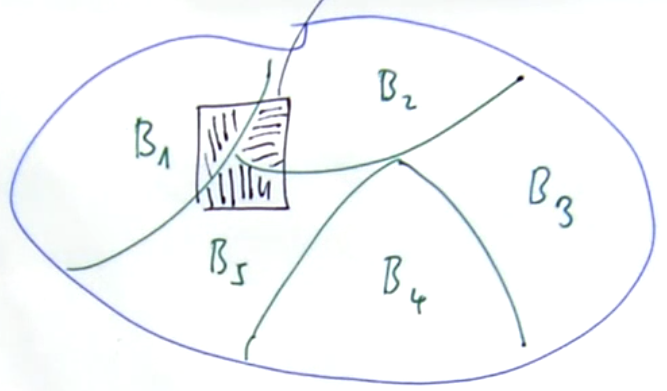 B₂
B₁
B₃
B₅
B₄